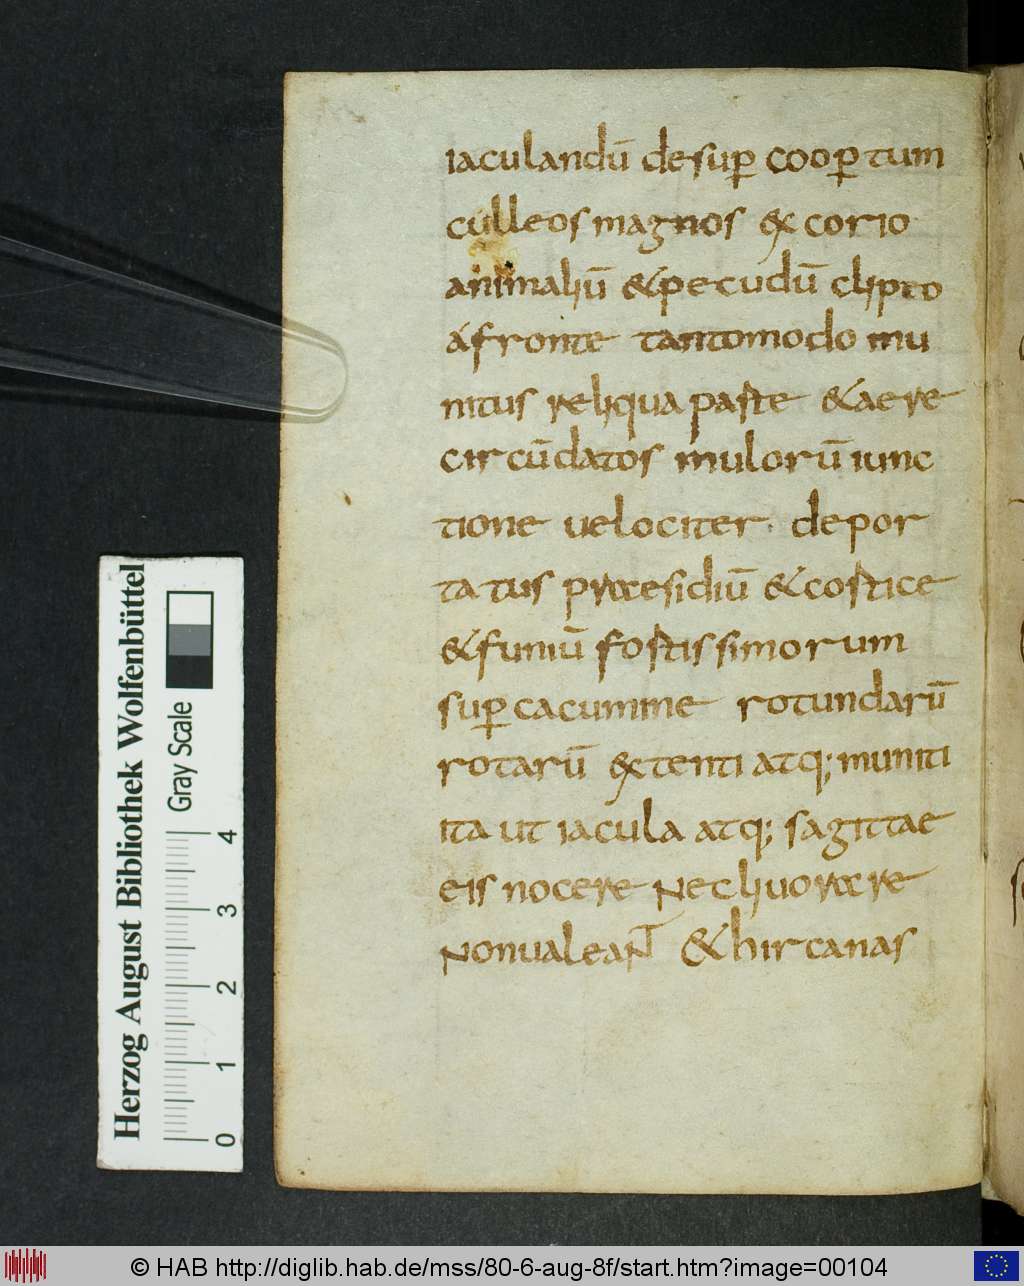 iaculandū desup cooptum
culleos magnos & corio
animaliū & pecudū clipeo
á fronte tantomodo mu
nitus reliqua parte & aere
circūdatos mulorū iunc
tione velociter. depor
tatus praesidiū & cortice
& funiū fortissimorum
sup cacumine rotundarū
rotarū extenti atq; muniti
ita ut iacula atq; sagittae
eis nocere nec livorare
non valeant & hircanas
Herzog August Bibliothek Wolfenbüttel
Gray Scale
0 1 2 3 4
© HAB http://diglib.hab.de/mss/80-6-aug-8f/start.htm?image=00104